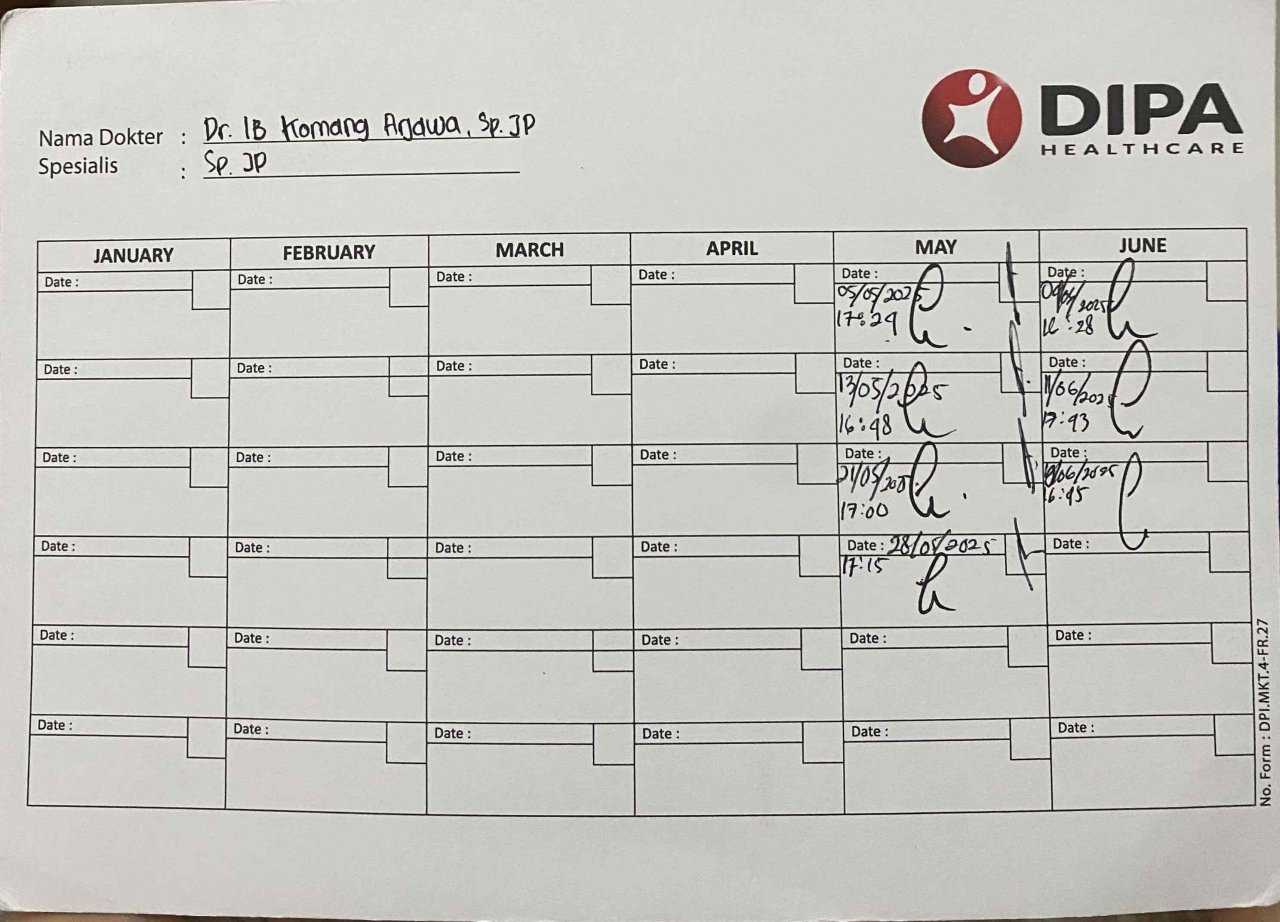 DIPA
HEALTHCARE
Nama Dokter : Dr. IB Komang Arjawa, Sp. JP
Spesialis : Sp. JP
JANUARY FEBRUARY MARCH APRIL MAY JUNE
Date : Date : Date : Date : Date : Date :
05/05/2025
17:29 :28
Date : Date : Date : Date : Date : Date :
13/05/2025 11/06/2025
16:48 17:43
Date : Date : Date : Date : Date : Date :
21/05/
17:00 16:45
Date : Date : Date : Date : Date : 28/05/2025 Date :
17:15
Date : Date : Date : Date : Date : Date :
Date : Date : Date : Date : Date : Date :
No. Form : DPI.MKT.4-FR.27